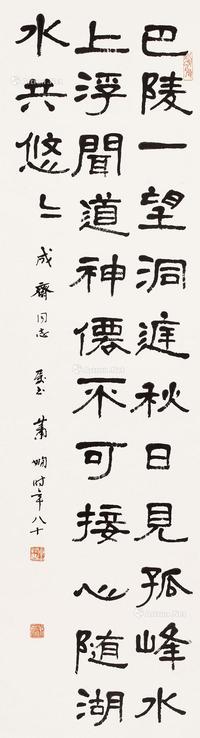 巴陵一望洞庭秋日見孤峰水
上浮聞道神僊不可接心随湖
水共悠〻
成齋同志 属书 萧娴时年八十